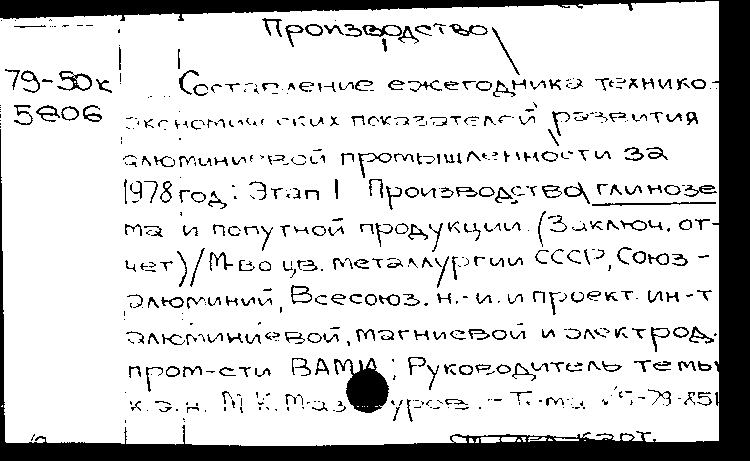 Производство
79-50к Составление ежегодника технико-
5806 экономических показателей развития
алюминиевой промышленности за
1978 год: Этап 1 Производство глинозе
ма и попутной продукции. (Заключ. от-
чет)/М-во цв. металлургии СССР, Союз-
алюминий, Всесоюз. н.-и. и проект. ин-т
алюминиевой, магниевой и электрод.
пром-сти ВАМИ; Руководитель темы
к.э.н. М.К. - Т-ма 5-79-851
карт.